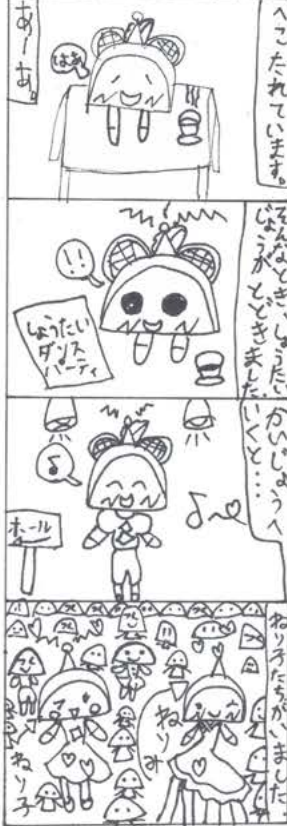 へこたれています。
はあ
あーあ。
そんなとき、しょうたい
じょうがとどきました。
!!
しょうたい
ダンス
パーティ
かいじょうへ
いくと・・・
♪
♪~♡
ホール
ねり子たちがいました
ねりみ
ねり子